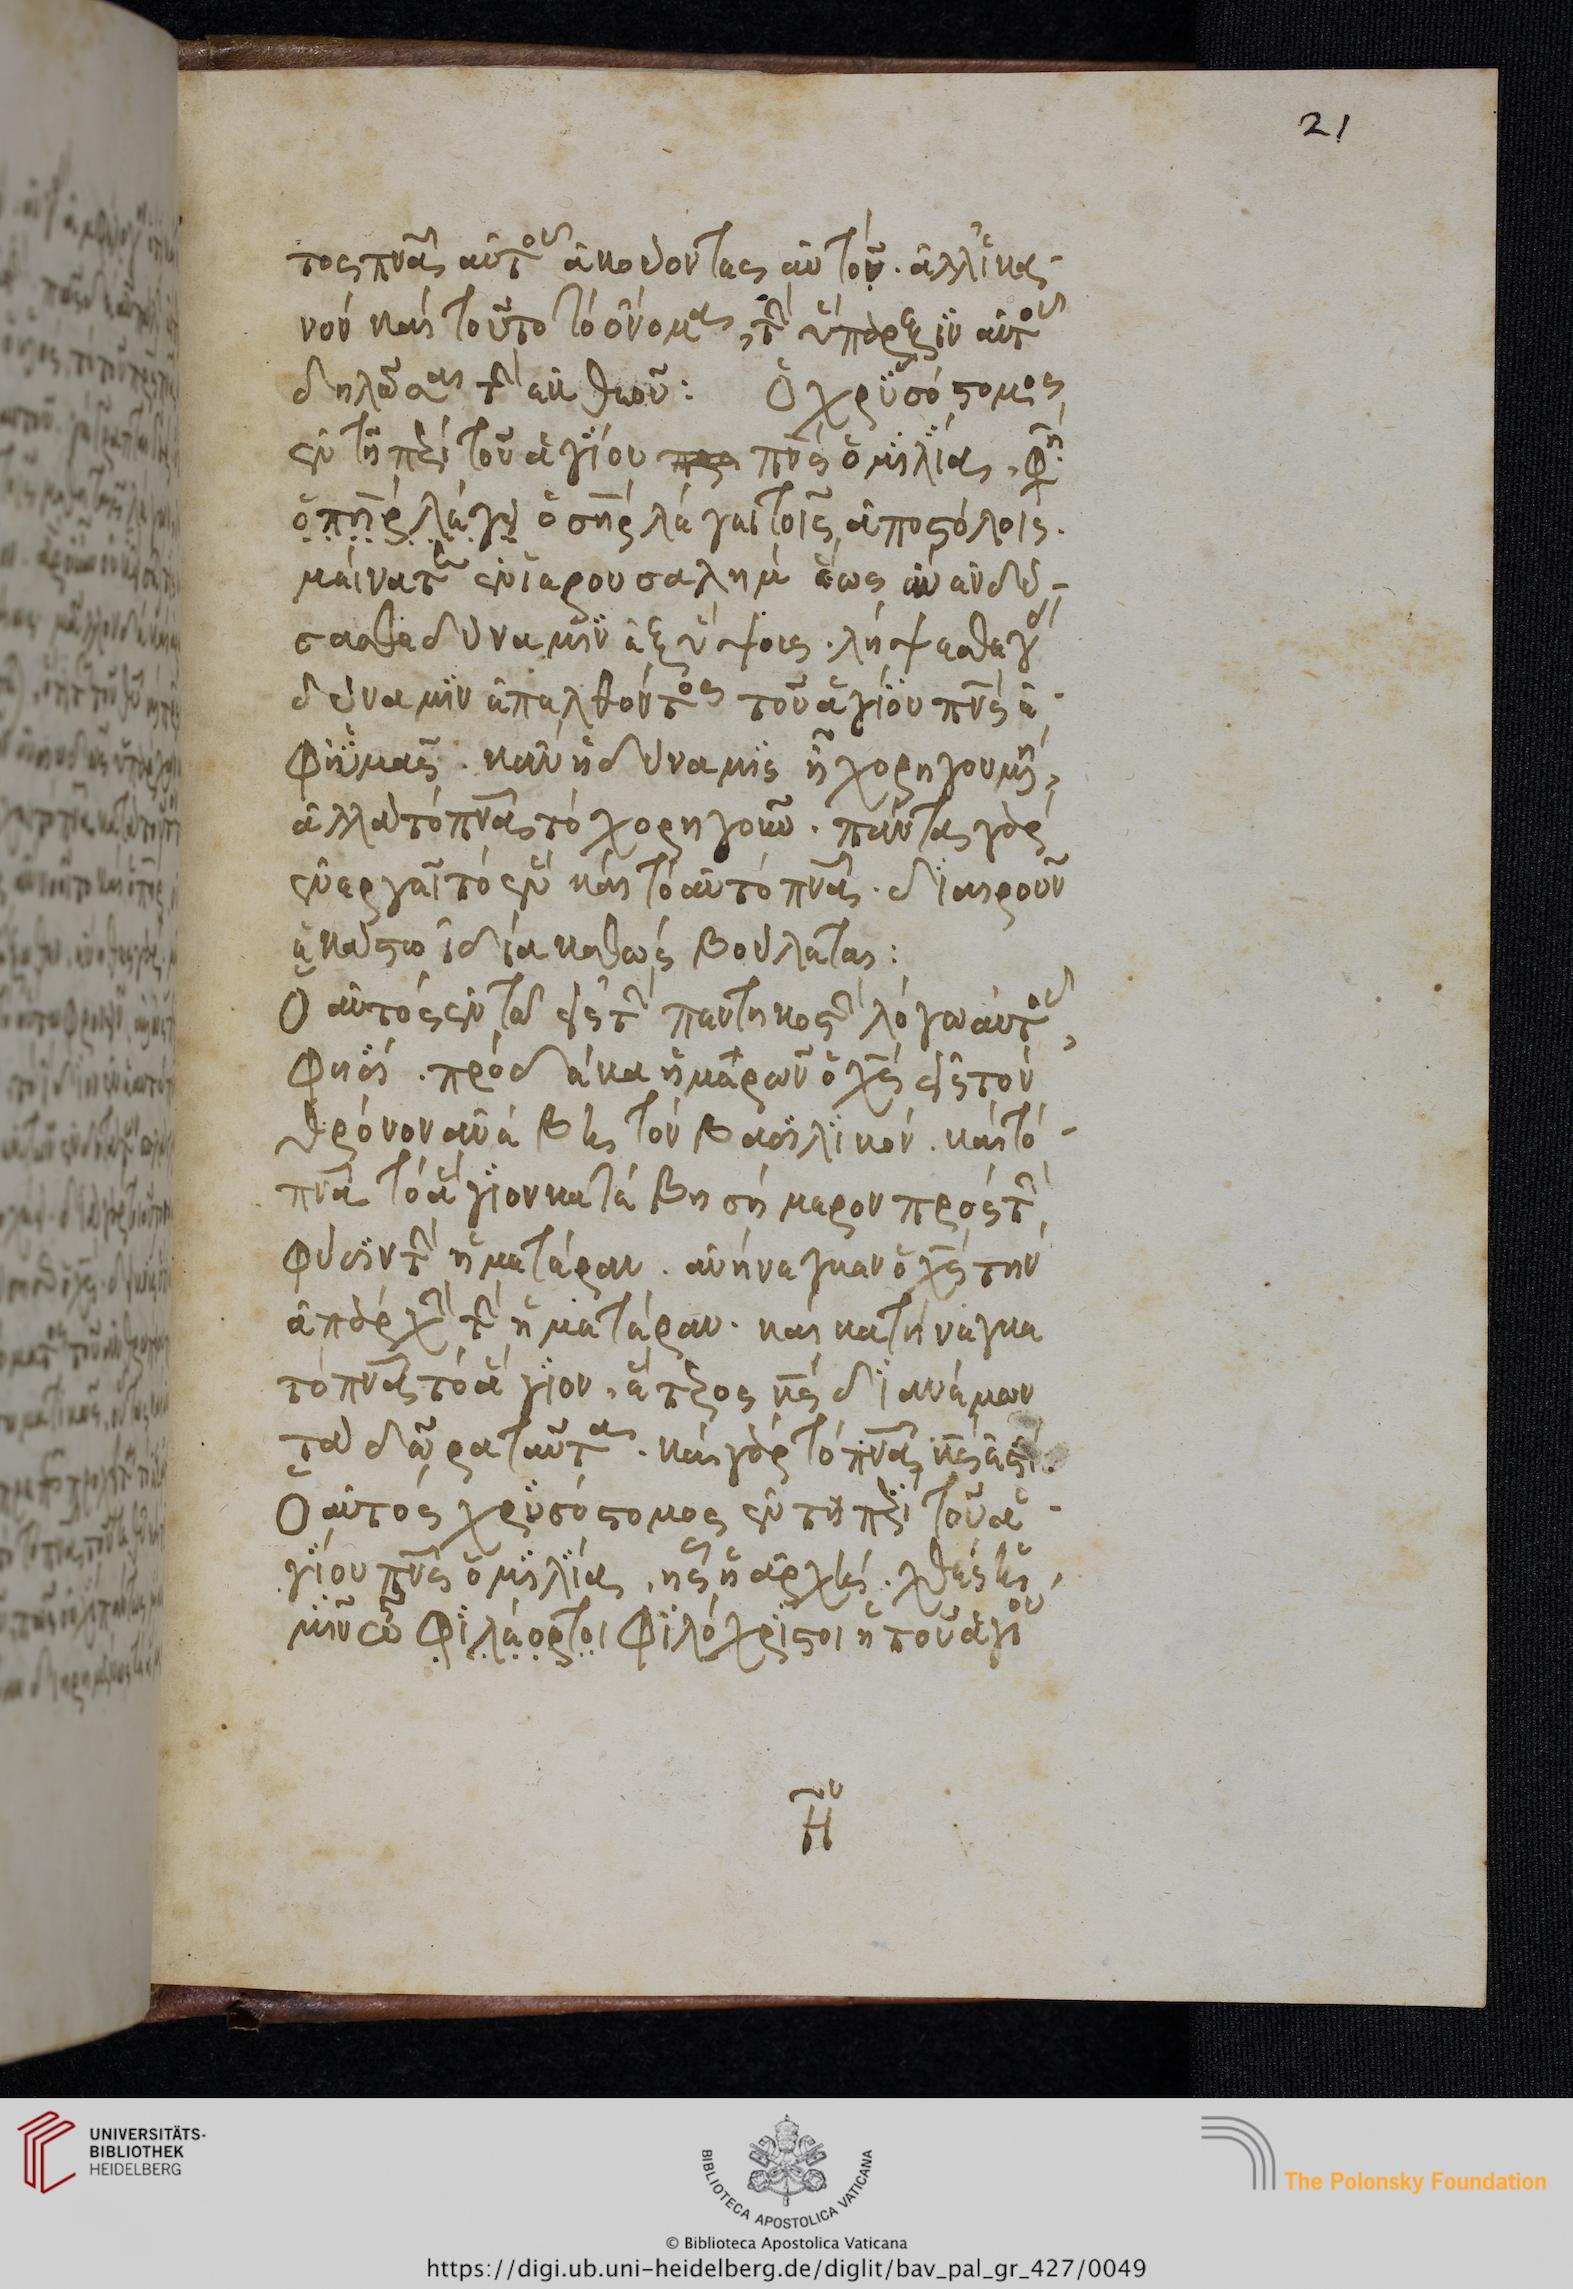 21
τος πνς αὐτοῦ ἀκούοντας αὐτοῦ. ἀλλ' ἱκα-
νόν καὶ τοῦτο τό ὄνομα, τὴν ὕπαρξιν αὐτοῦ
δηλῶσαι τὴν ἐκ θεοῦ: Ὁ χρυσόστομος
ἐν τῇ περὶ τοῦ ἁγίου πνς ὁμιλία, φη:
ὁ πηρ λέγει ὁ σηρ λέγει τοῖς ἀποστόλοις.
μείνατε ἐν ἱερουσαλημ ἕως ἂν ἐνδύ-
σασθε δύναμιν ἐξ ὕψους. λήψεσθε γὰρ
δύναμιν ἐπελθόντος τοῦ ἁγίου πνς ἐ-
φ' ὑμᾶς. καὶ οὐχ ἡ δύναμις ἡ χορηγουμένη,
ἀλλὰ τό πνα τό χορηγοῦν. πάντα γὰρ
ἐνεργεῖ τό ἓν καὶ τό αὐτό πνα. διαιροῦν
ἑκάστω ἰδία καθώς βούλεται:
Ὁ αὐτός ἐν τῶ εἰς τὴν πεντηκοστὴν λόγω αὐτοῦ,
φησί. πρό δέκα ἡμερῶν ὁ χς εἰς τόν
θρόνον ἀνέβη τόν βασιλικόν. καὶ τό
πνα τό ἅγιον κατέβη σήμερον πρός τὴν
φύσιν τὴν ἡμετέραν. ἀνήνεγκεν ὁ χς τήν
ἀπαρχὴν τὴν ἡμετέραν. καὶ κατήνεγκε
τό πνα τό ἅγιον, ἕτερος κς διανέμων
τὰ δῶρα ταῦτα. καὶ γὰρ τό πνα κς ἐστί.
Ὁ αὐτός χρυσόστομος ἐν τῇ περὶ τοῦ ἁ-
γίου πνς ὁμιλία, ἧς ἡ ἀρχή. χθές ἡ-
μῖν ὦ φιλέορτοι φιλόχριστοι ἡ τοῦ ἁγίου
UNIVERSITÄTS-
BIBLIOTHEK
HEIDELBERG
BIBLIOTECA APOSTOLICA VATICANA
The Polonsky Foundation
© Biblioteca Apostolica Vaticana
https://digi.ub.uni-heidelberg.de/diglit/bav_pal_gr_427/0049